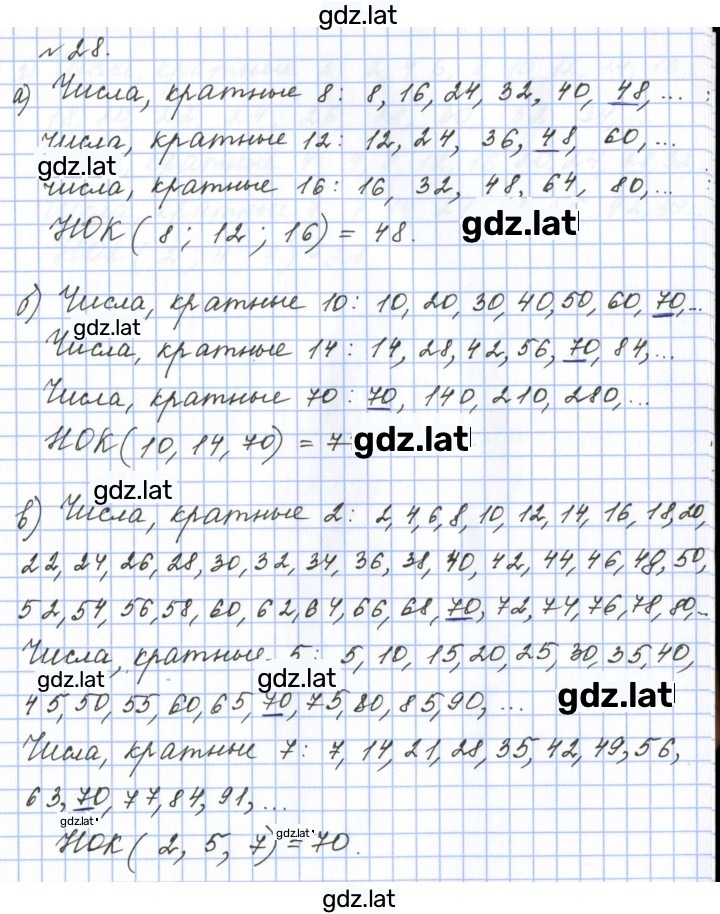 gdz.lat
№28.
а) Числа, кратные 8: 8, 16, 24, 32, 40, 48, ...
числа, кратные 12: 12, 24, 36, 48, 60, ...
gdz.lat
числа, кратные 16: 16, 32, 48, 64, 80, ...
НОК(8; 12; 16) = 48.
gdz.lat
б) Числа, кратные 10: 10, 20, 30, 40, 50, 60, 70, ...
gdz.lat
Числа, кратные 14: 14, 28, 42, 56, 70, 84, ...
Числа, кратные 70: 70, 140, 210, 280, ...
НОК(10, 14, 70) = 7
gdz.lat
gdz.lat
в) Числа, кратные 2: 2, 4, 6, 8, 10, 12, 14, 16, 18, 20,
22, 24, 26, 28, 30, 32, 34, 36, 38, 40, 42, 44, 46, 48, 50,
52, 54, 56, 58, 60, 62, 64, 66, 68, 70, 72, 74, 76, 78, 80, ...
Числа, кратные 5: 5, 10, 15, 20, 25, 30, 35, 40,
gdz.lat
gdz.lat
gdz.lat
45, 50, 55, 60, 65, 70, 75, 80, 85, 90, ...
Числа, кратные 7: 7, 14, 21, 28, 35, 42, 49, 56,
63, 70, 77, 84, 91, ...
gdz.lat
gdz.lat
НОК(2, 5, 7) = 70.
gdz.lat